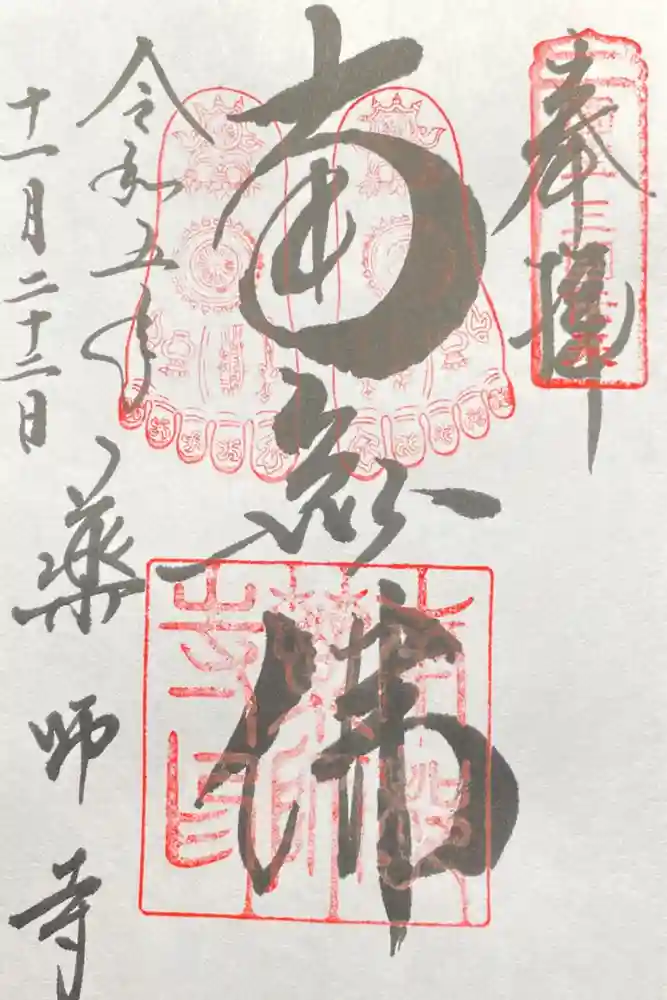 奉拝
南無佛
令和五年
十一月二十二日
薬師寺